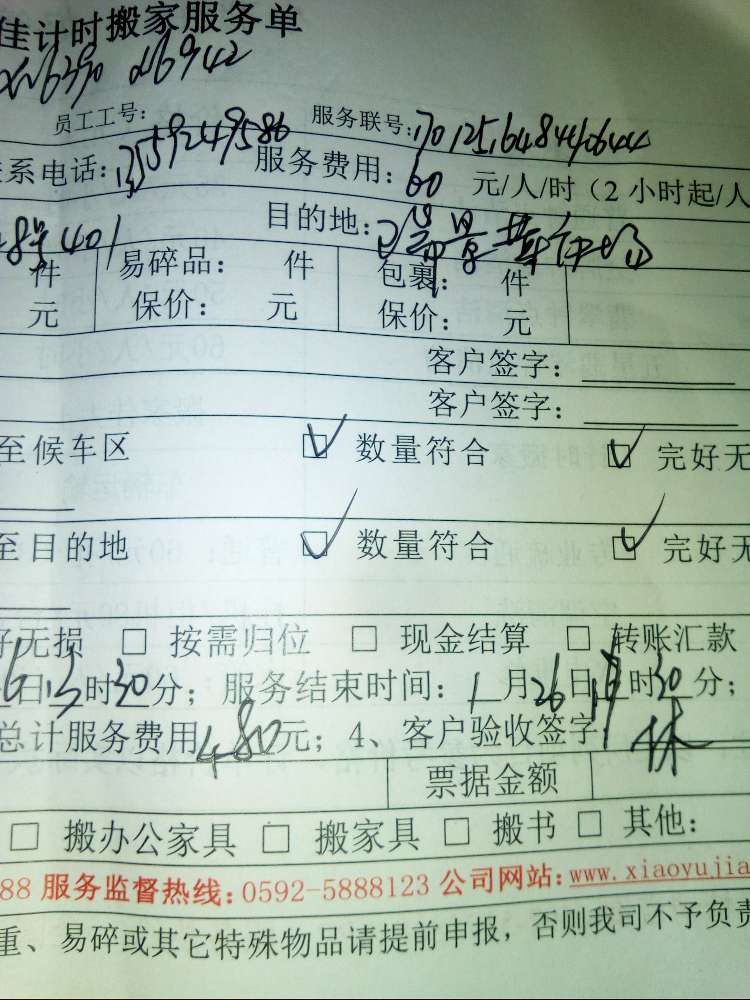 佳计时搬家服务单
员工工号: 服务联号:
系电话:13559249586 服务费用:60 元/人/时(2小时起/人
8号401 目的地:
件 易碎品: 件 包裹: 件
元 保价: 元 保价: 元
客户签字:
客户签字:
至候车区 ☑ 数量符合 ☑ 完好无
至目的地 ☑ 数量符合 ☑ 完好无
好无损 □ 按需归位 □ 现金结算 □ 转账汇款
6日13时30分;服务结束时间:1月26日17时30分;
总计服务费用480元;4、客户验收签字 林
票据金额
□ 搬办公家具 □ 搬家具 □ 搬书 □ 其他:
88 服务监督热线:0592-5888123 公司网站:www.xiaoyujia
重、易碎或其它特殊物品请提前申报,否则我司不予负责